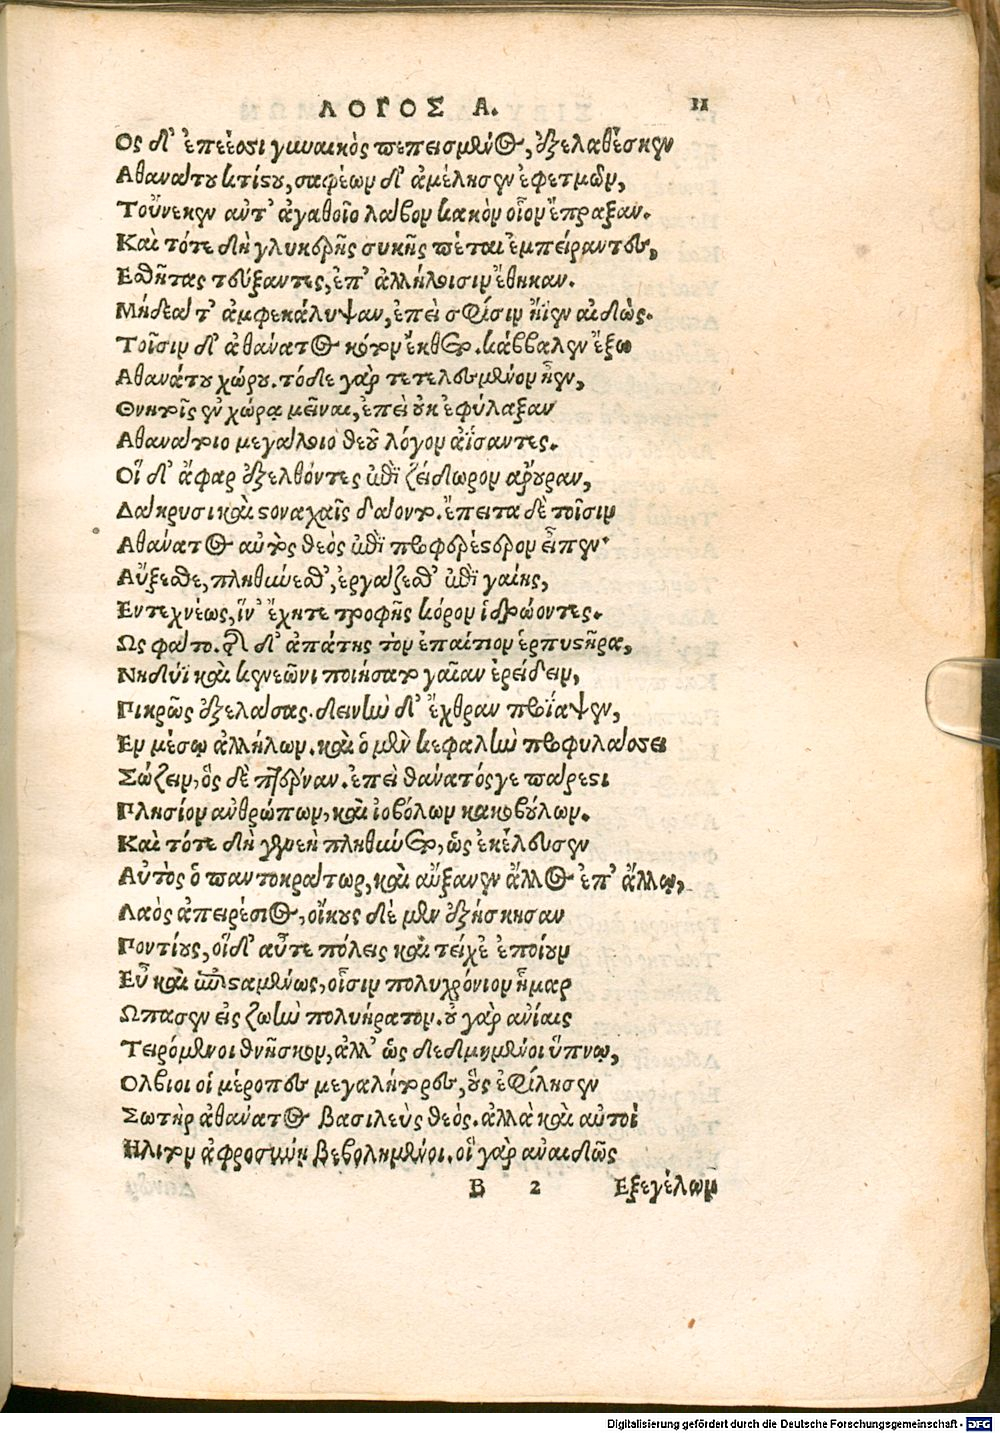 ΛΟΓΟΣ Α. 11
Ος δ' ἐπέεσσι γυναικὸς πεπεισμένος, ἐξελαθέσκεν
Αθανάτου κτίστου, σαφέων δ' ἀμέλησεν ἐφετμῶν,
Τοὔνεκεν αὐτ' ἀγαθοῖο λάβον κακὸν οἷον ἔπραξαν.
Καὶ τότε δὴ γλυκερῆς συκῆς πέταλ' ἐμπείραντες,
Εσθῆτας τεύξαντες, ἐπ' ἀλλήλοισιν ἔθηκαν.
Μήδεά τ' ἀμφεκάλυψαν, ἐπεὶ σφίσιν ἤϊεν αἰδώς.
Τοῖσιν δ' ἀθάνατος κότον ἔκθετο. κάββαλεν ἔξω
Αθανάτου χώρου. τόδε γὰρ τετελεσμένον ἦεν,
Θνητοῖς ἐν χώρᾳ μεῖναι, ἐπεὶ οὐκ ἐφύλαξαν
Αθανάτοιο μεγάλοιο θεοῦ λόγον ἀΐσαντες.
Οἳ δ' ἄφαρ ἐξελθόντες ἐπὶ ζείδωρον ἄρουραν,
Δάκρυσι καὶ στοναχαῖς δαίοντο. ἔπειτα δὲ τοῖσιν
Αθάνατος αὐτὸς θεὸς ἐπὶ προφερέστερον εἶπεν·
Αὔξεσθε, πληθύνεσθ', ἐργάζεσθ' ἐπὶ γαίης,
Εντεχνέως, ἵν' ἔχητε τροφῆς κόρον ἱδρώοντες.
Ως φάτο. τὸν δ' ἀπάτης τὸν ἐπαίτιον ἑρπυστῆρα,
Νηδύϊ καὶ κενεῶνι ποιήσατο γαῖαν ἐρείδειν,
Πικρῶς ἐξελάσας. δεινὴν δ' ἔχθραν προΐαψεν,
Εν μέσῳ ἀλλήλων. καὶ ὁ μὲν κεφαλὴν προφυλάσσει
Σώζειν, ὃς δὲ πτέρναν. ἐπεὶ θάνατός γε πάρεστι
Πλησίον ἀνθρώπων, καὶ ἰοβόλων κακοβούλων.
Καὶ τότε δὴ γενεὴ πληθύετο, ὡς ἐκέλευσεν
Αὐτὸς ὁ παντοκράτωρ, καὶ αὔξανεν ἄλλος ἐπ' ἄλλῳ,
Λαὸς ἀπειρέσιος, οἴκους δὲ μὲν ἐξήσκησαν
Ποντίους, οἵδ' αὖτε πόλεις καὶ τείχε' ἐποίουν
Εὖ καὶ ἐπισταμένως, οἷσιν πολυχρόνιον ἦμαρ
Ωπασεν εἰς ζωὴν πολυήρατον. οὐ γὰρ ἀνίαις
Τειρόμενοι θνῆσκον, ἀλλ' ὡς δεδμημένοι ὕπνῳ,
Ολβιοι οἱ μέροπες μεγαλήτορες, οὓς ἐφίλησεν
Σωτὴρ ἀθάνατος βασιλεὺς θεός. ἀλλὰ καὶ αὐτοὶ
Ηλιτον ἀφροσύνῃ βεβολημένοι. οἳ γὰρ ἀναιδῶς
B 2 Εξεγέλων
Digitalisierung gefördert durch die Deutsche Forschungsgemeinschaft - DFG